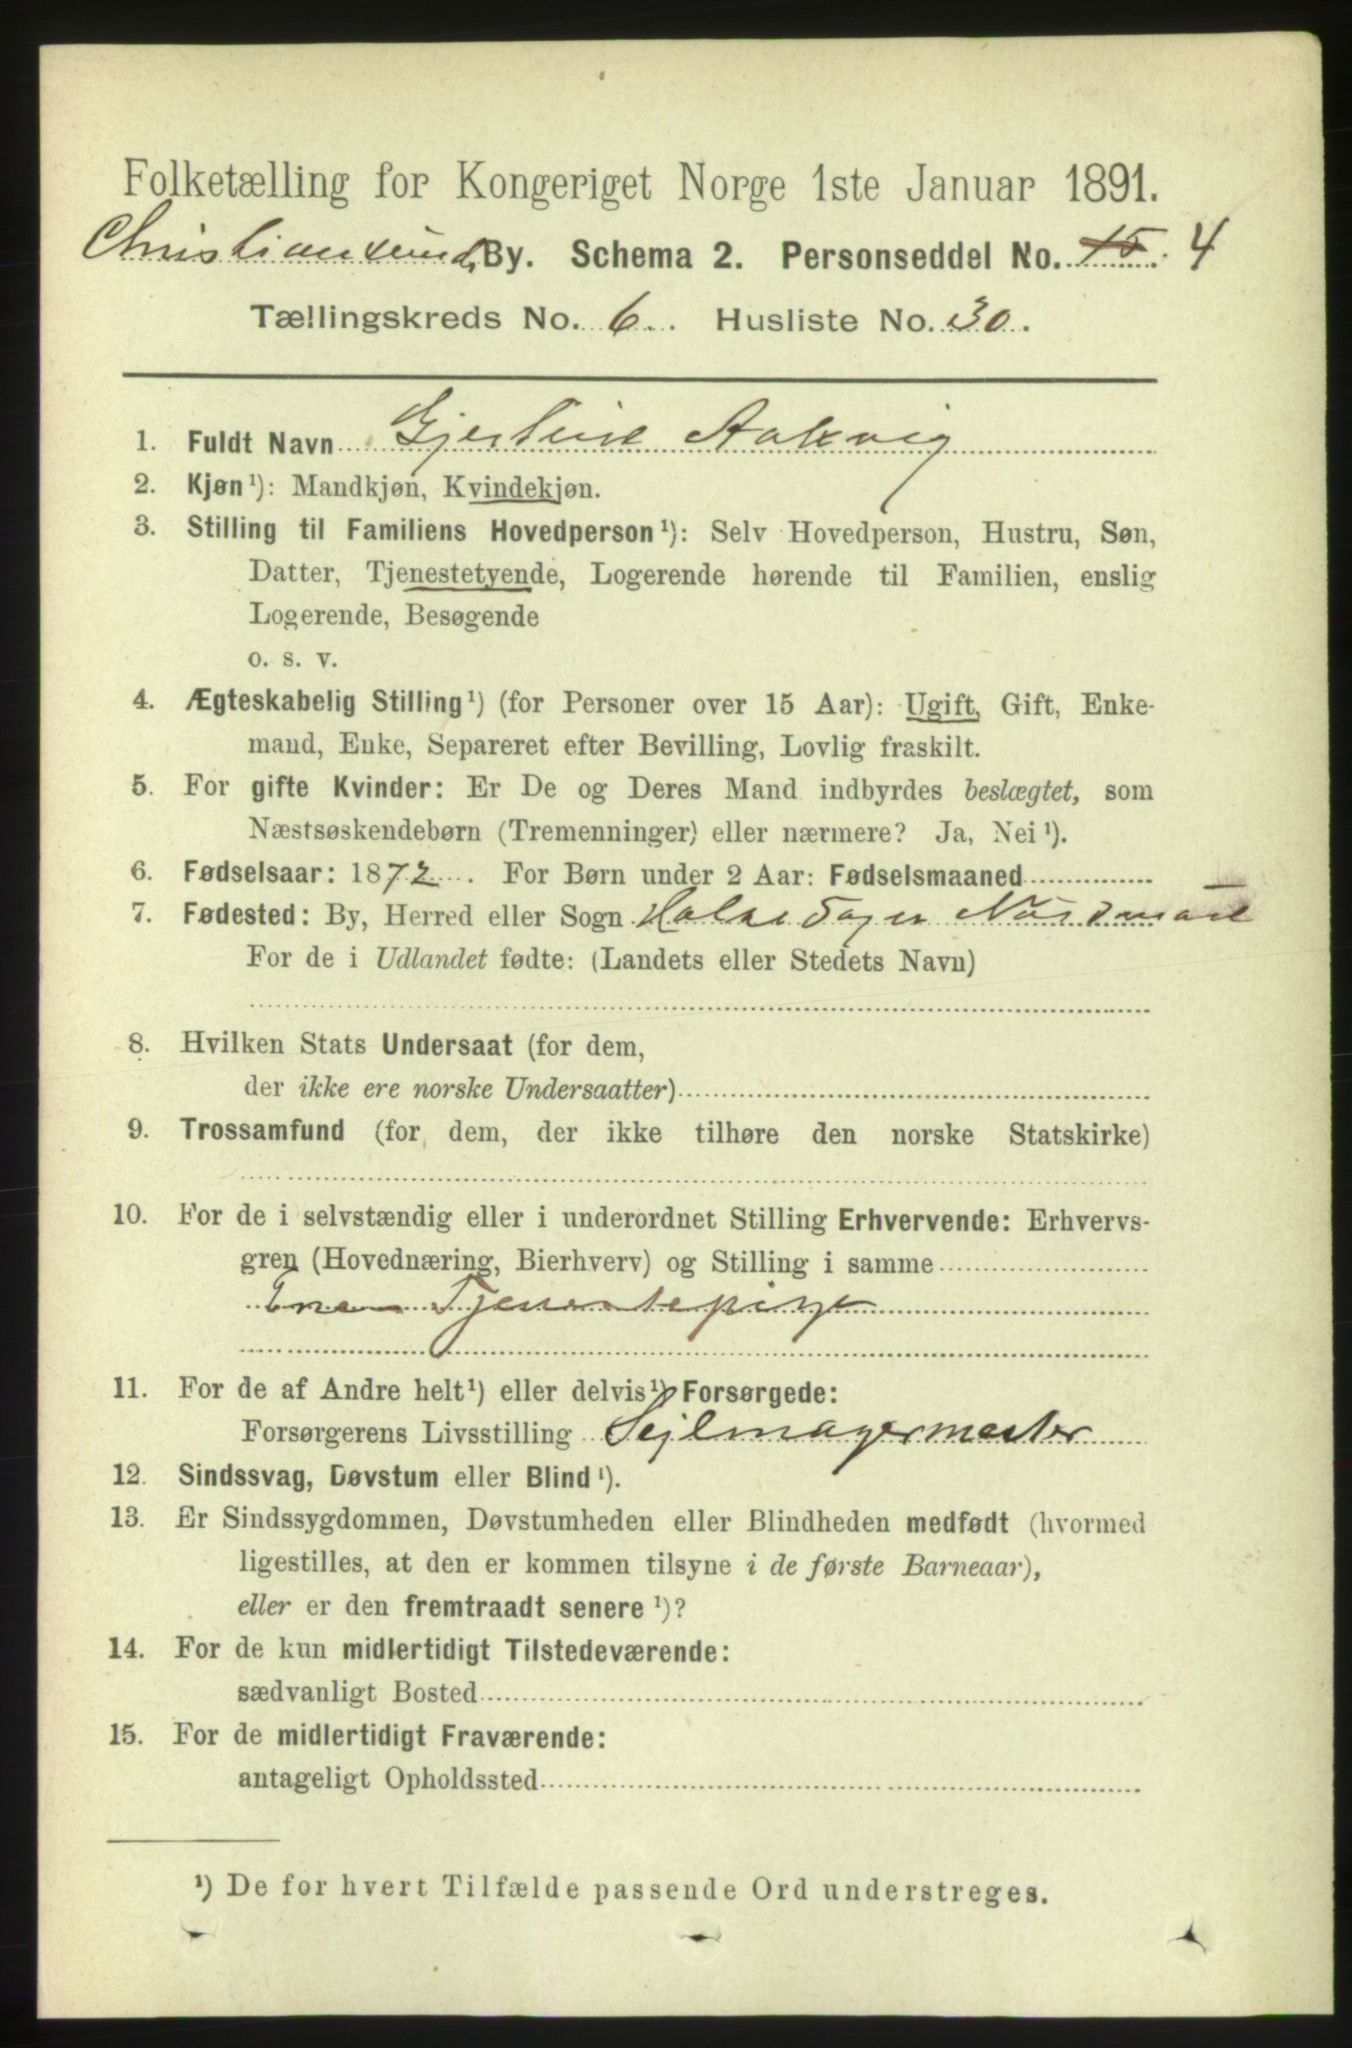 Folketælling for Kongeriget Norge 1ste Januar 1891.
Christiansund By. Schema 2. Personseddel No. 15 4
Tællingskreds No. 6. Husliste No. 30.
1. Fuldt Navn Gjertine Aakvig
2. Kjøn ¹): Mandkjøn, Kvindekjøn.
3. Stilling til Familiens Hovedperson ¹): Selv Hovedperson, Hustru, Søn,
Datter, Tjenestetyende, Logerende hørende til Familien, enslig
Logerende, Besøgende
o. s. v.
4. Ægteskabelig Stilling ¹) (for Personer over 15 Aar): Ugift, Gift, Enke-
mand, Enke, Separeret efter Bevilling, Lovlig fraskilt.
5. For gifte Kvinder: Er De og Deres Mand indbyrdes beslægtet, som
Næstsøskendebørn (Tremenninger) eller nærmere? Ja, Nei ¹).
6. Fødselsaar: 1872. For Børn under 2 Aar: Fødselsmaaned
7. Fødested: By, Herred eller Sogn Halse Nordmøre
For de i Udlandet fødte: (Landets eller Stedets Navn)
8. Hvilken Stats Undersaat (for dem,
der ikke ere norske Undersaatter)
9. Trossamfund (for dem, der ikke tilhøre den norske Statskirke)
10. For de i selvstændig eller i underordnet Stilling Erhvervende: Erhvervs-
gren (Hovednæring, Bierhverv) og Stilling i samme
Tjenestepige
11. For de af Andre helt ¹) eller delvis ¹) Forsørgede:
Forsørgerens Livsstilling Sejlmagermester
12. Sindssvag, Døvstum eller Blind ¹).
13. Er Sindssygdommen, Døvstumheden eller Blindheden medfødt (hvormed
ligestilles, at den er kommen tilsyne i de første Barneaar),
eller er den fremtraadt senere ¹)?
14. For de kun midlertidigt Tilstedeværende:
sædvanligt Bosted
15. For de midlertidigt Fraværende:
antageligt Opholdssted
¹) De for hvert Tilfælde passende Ord understreges.